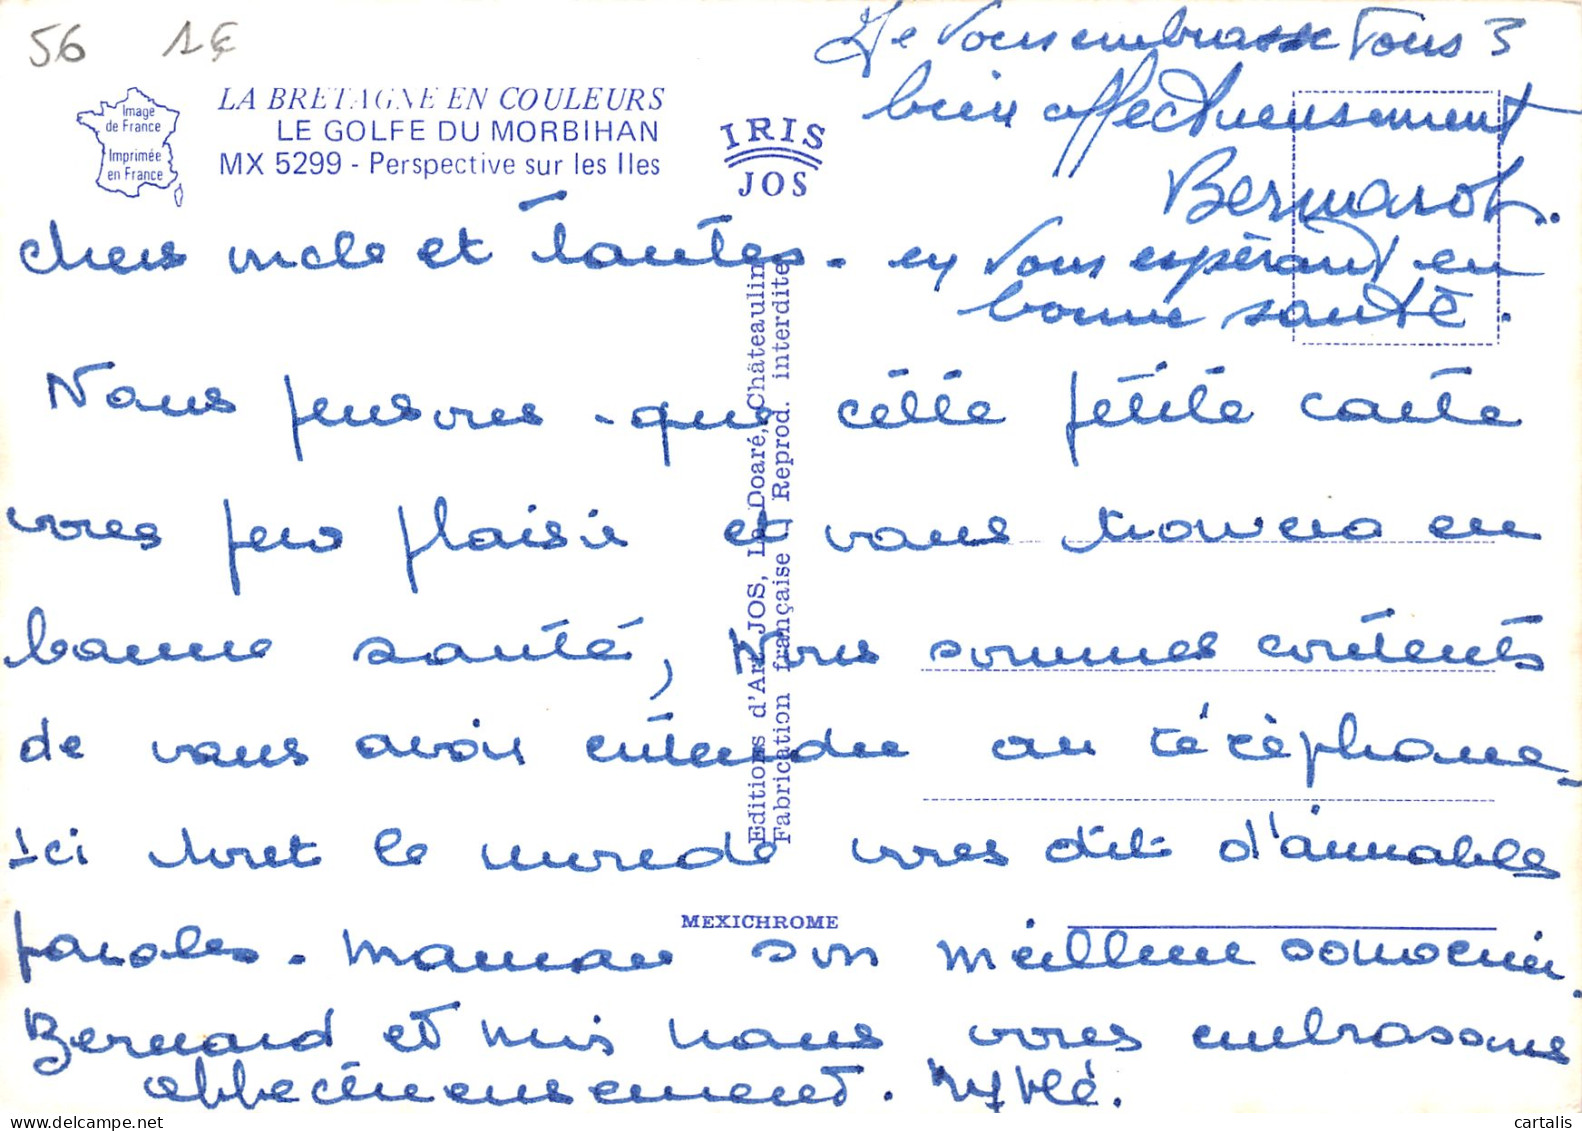 56 1€
Image
de France
Imprimée
en France
LA BRETAGNE EN COULEURS
LE GOLFE DU MORBIHAN
MX 5299 - Perspective sur les Iles
IRIS
JOS
Je vous embrasse tous 3
bien affectueusement
Bernard.
en vous espérant en
bonne santé.
chers oncle et tantes.
Nous pensons que cette petite carte
vous fera plaisir et vous trouvera en
bonne santé, Nous sommes contents
de vous avoir entendu au téléphone
Ici tout le monde vous dit d'aimables
paroles. maman son meilleur souvenir.
Bernard et moi nous vous embrassons
affectueusement.
Editions d'Art JOS, Le Doaré, Châteaulin
Fabrication française - Reprod. interdite
MEXICHROME
cartalis